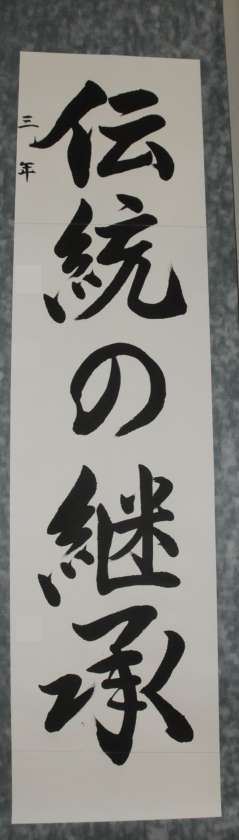 伝統の継承
三年